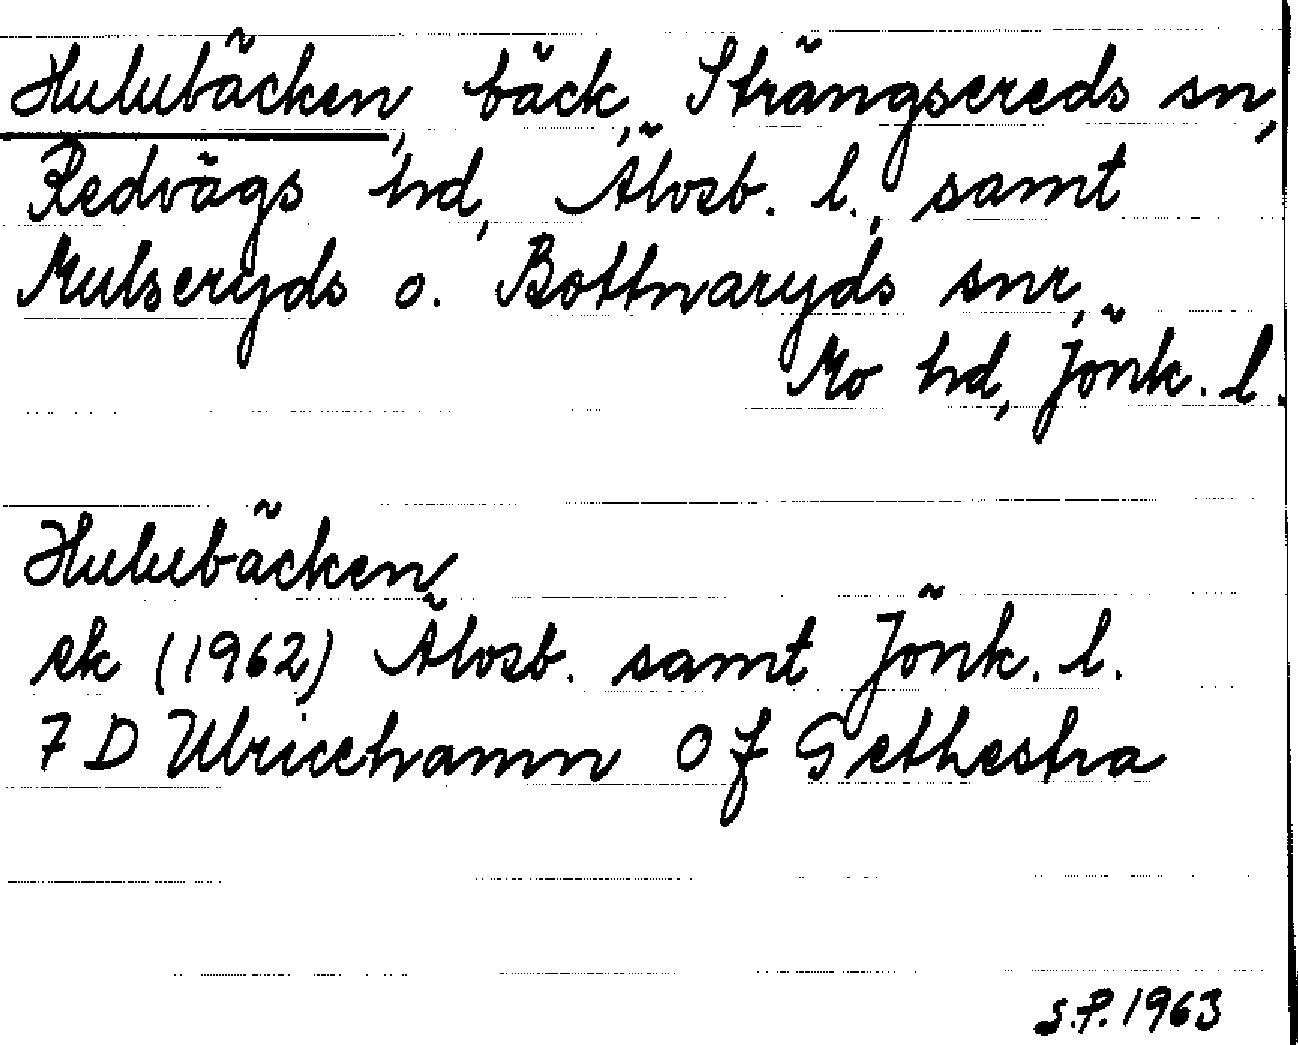 Hulubäcken, bäck, Strängsereds sn,
Redvägs hd, Älvsb. l., samt
Mulseryds o. Bottnaryds snr,
Mo hd, Jönk. l.
Hulubäcken
ek (1962) Älvsb. samt Jönk. l.
7 D Ulricehamn 0 f Gethestra
S.P. 1963